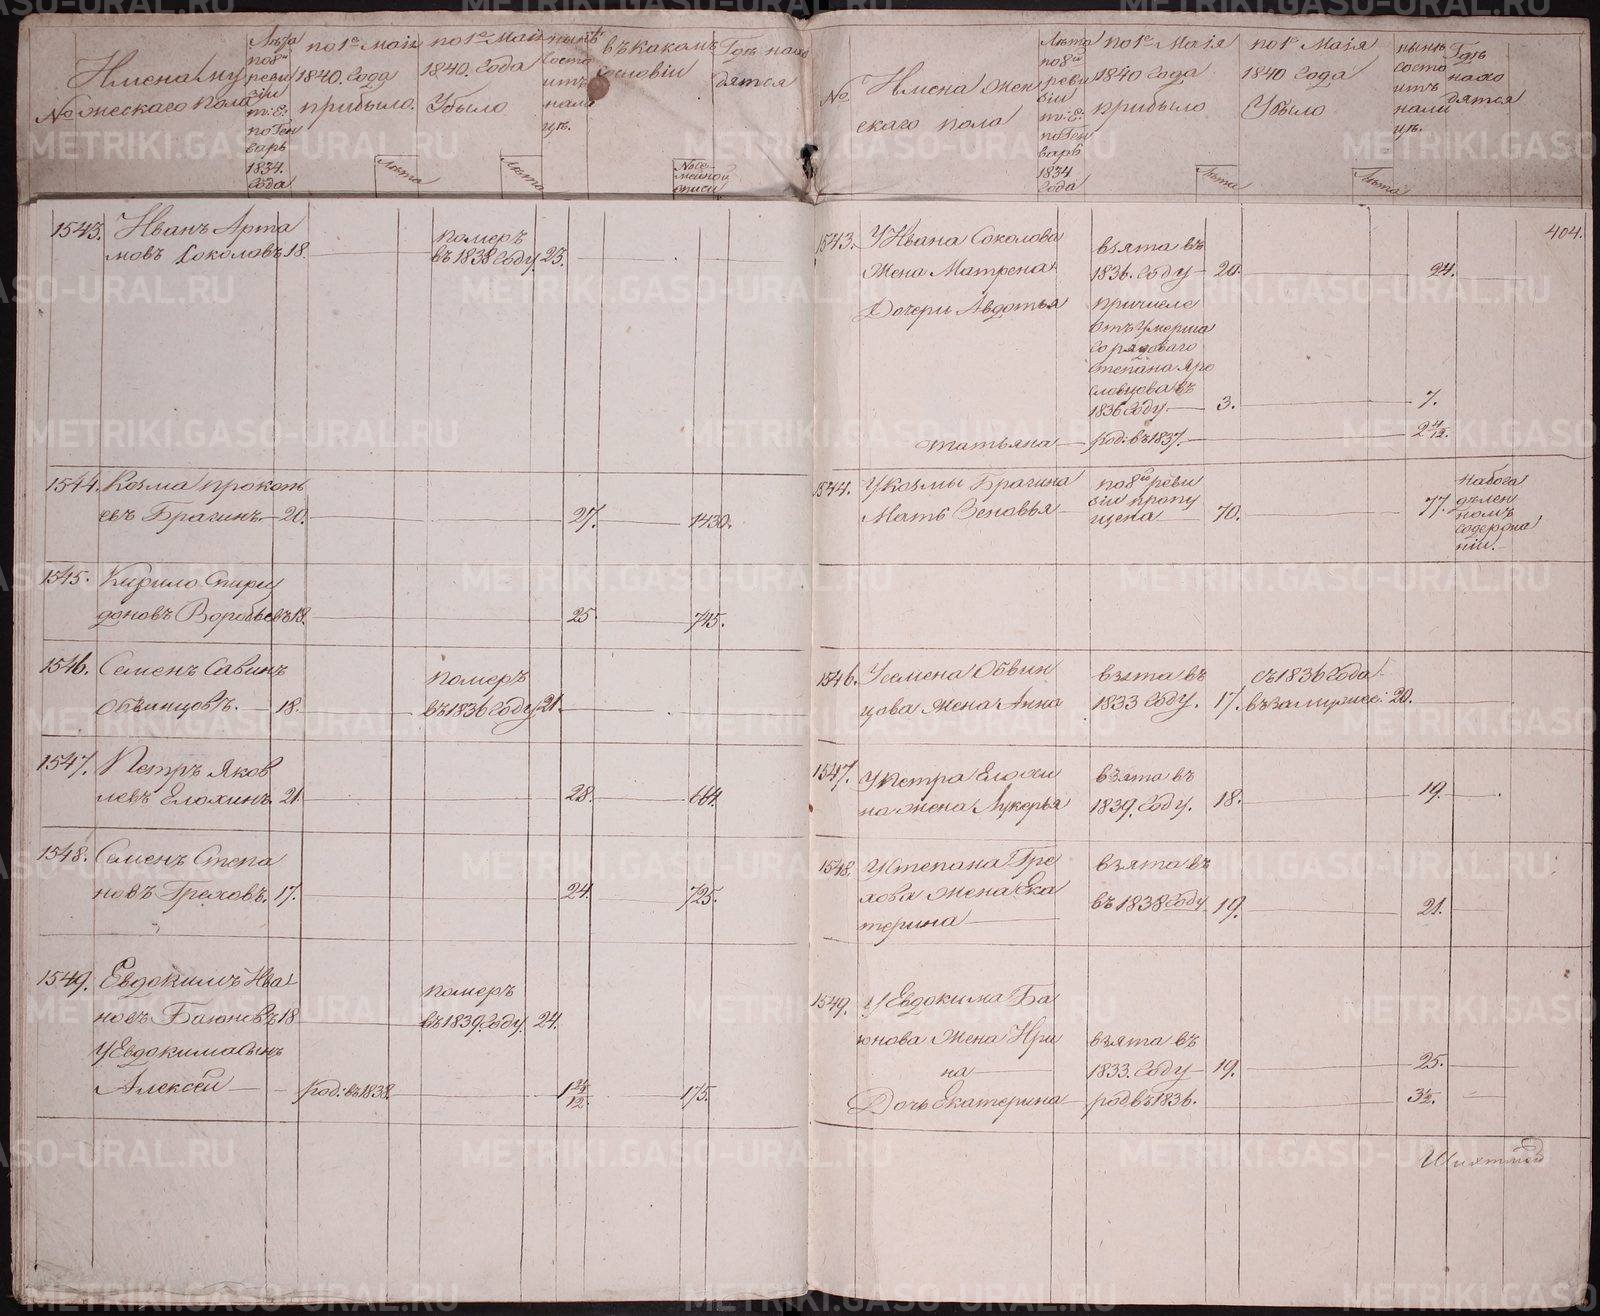 №
Имена му
жескаго пола
Лѣта
по 8й
реви
зіи
т. е.
по Ген
варь
1834.
года
по 1е Маія
1840. года
прибыло.
лѣта
по 1е Маія
1840. года
Убыло
лѣта
нынѣ
состо
итъ
нали
цѣ.
въ какомъ
сословіи
№ се
мейной
описи
Гдѣ нахо
дятся
1543. Иванъ Арта
моновъ Соколовъ 18.
померъ
въ 1838 году 23.
1544. Козма прокопь
евъ Брагинъ. 20.
27.
1430.
1545. Кирило Спири
доновъ Воробьевъ 18.
25.
745.
1546. Семенъ Савинъ
Обвинцовъ. 18.
померъ
въ 1836 году 21.
1547. Петръ Яков
левъ Елохинъ. 21.
28.
664.
1548. Семенъ Степа
новъ Греховъ. 17.
24.
725.
1549. Евдокимъ Ива
новъ Баюновъ 18
померъ
въ 1839. году. 24.
У Евдокима сынъ
Алексей
род: въ 1838.
1
12.
175.
№
Имена жен
скаго пола
Лѣта
по 8й
реви
зіи
т. е.
по Ген
варь
1834
года
по 1е Маія
1840 года
прибыло
лѣта
по 1е Маія
1840 года
Убыло
лѣта
нынѣ
состо
итъ
нали
цѣ.
Гдѣ
нахо
дятся
404.
1543. У Ивана Соколова
Жена Матрена
взята въ
1836. году 20.
24.
Дочери Авдотья
причисле
отъ умерша
го рядоваго
степана Яро
славцова въ
1836 году 3.
7.
татьяна род: въ 1837.
2 4/12.
1544. У Козмы Брагина
Мать Зеновья
по 8й реви
зіи пропу
щена 70.
77.
На бога
дѣлен
номъ
содержа
ніи.
1546. У семена Обвин
цова жена Анна
взята въ
1833 году. 17.
съ 1836 года
въ замужес: 20.
1547. У петра Елохи
на жена Лукерья
взята въ
1839. году. 18.
19.
1548. У степана Гре
хова жена Ека
терина
взята въ
въ 1838 году 19.
21.
1549. У Евдокима Ба
юнова жена Ири
на
взята въ
1833. году 19.
25.
Дочь Екатерина род въ 1836.
3½.
METRIKI.GASO-URAL.RU